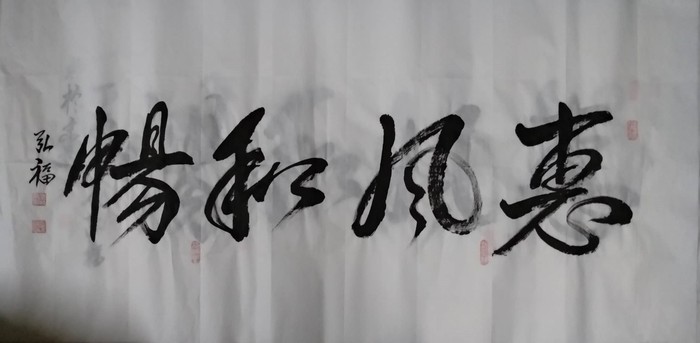 惠风和畅
弘福